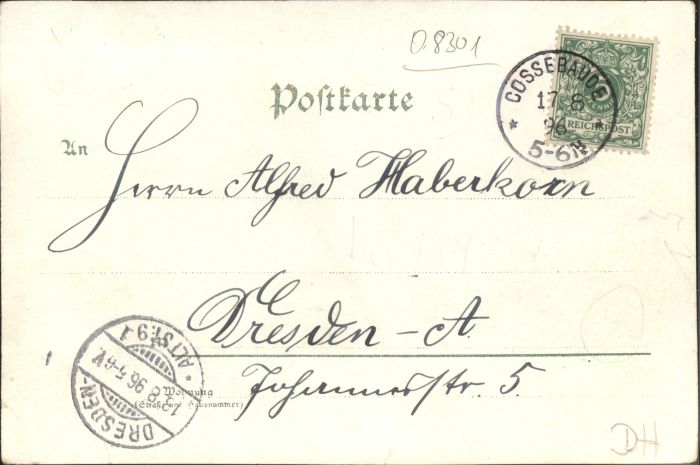 0.8301
Postkarte
COSSEBAUDE
17.8
96
5-6 N
REICHSPOST
An
Herrn Alfred Haberkorn
Dresden-A.
Johannesstr. 5.
Wohnung
(Straße und Hausnummer)
DRESDEN-
ALTST. 9
8 96 5-6 V
DH